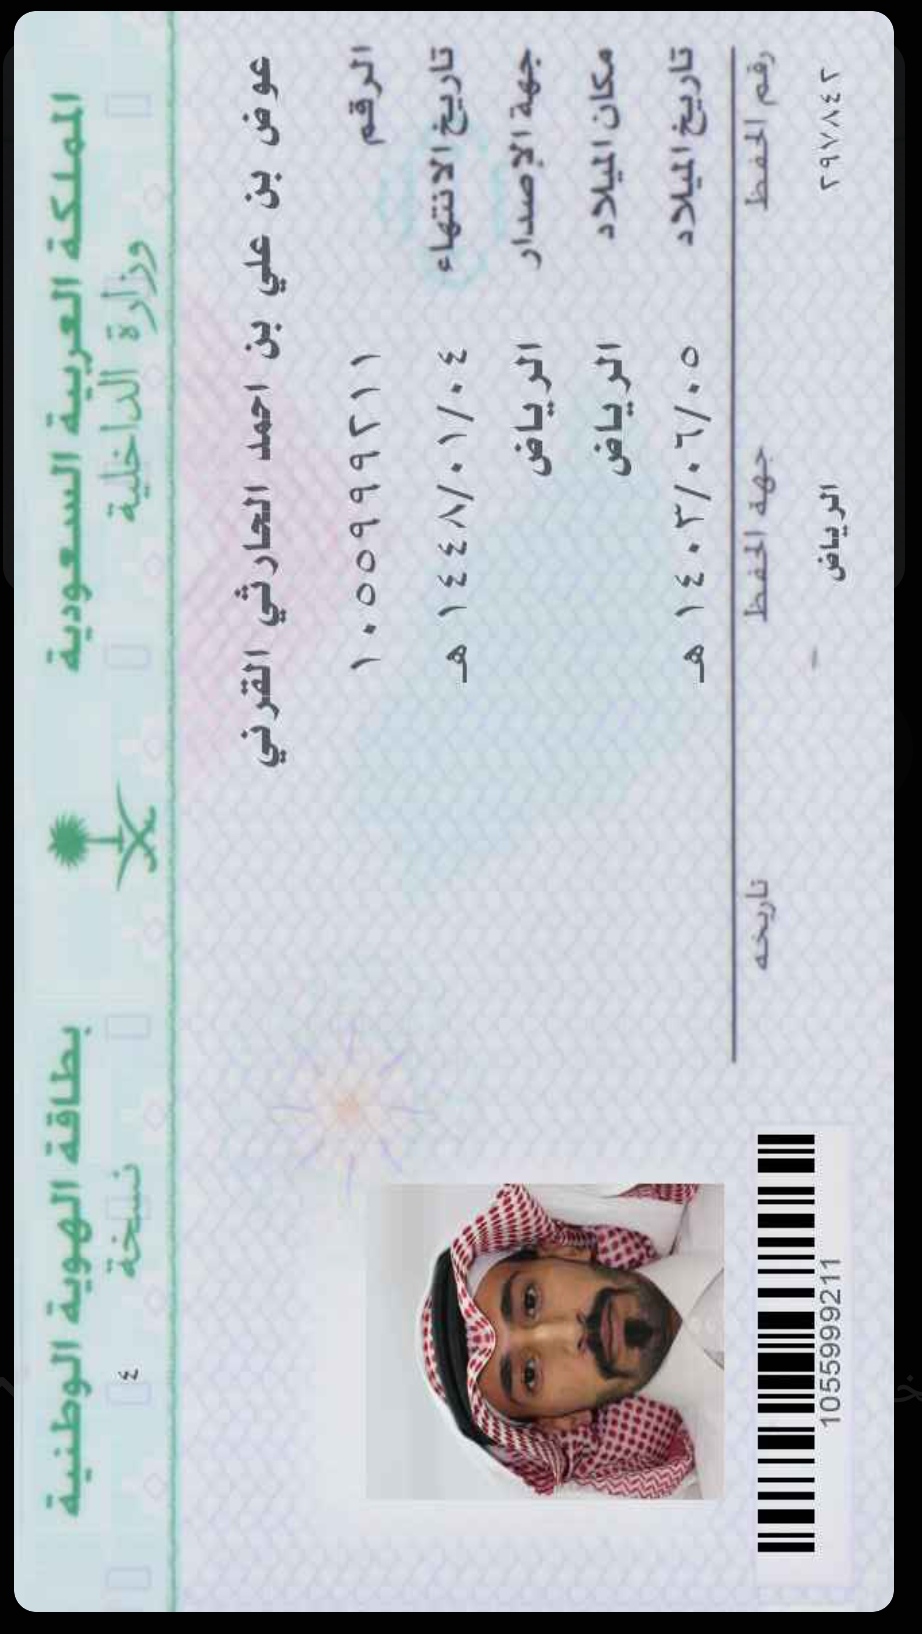 المملكة العربية السعودية
وزارة الداخلية
بطاقة الهوية الوطنية
نسخة ٤
عوض بن علي بن احمد الحارثي القرني
الرقم ١٠٥٥٩٩٩٢١١
تاريخ الانتهاء ١٤٤٨/٠١/٠٤ هـ
جهة الإصدار الرياض
مكان الميلاد الرياض
تاريخ الميلاد ١٤٠٣/٠٦/٠٥ هـ
رقم الحفظ جهة الحفظ تاريخه
٢٩٧٨٤٢ الرياض -
1055999211